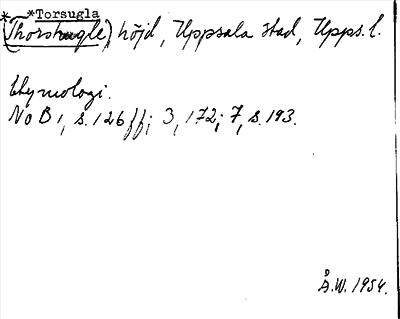 *Torsugla
*(Thorshugle), höjd, Uppsala stad, Upps. l.
Etymologi.
NoB 1, s. 126 ff; 3, 172; 7, s. 193.
Å.W. 1954.